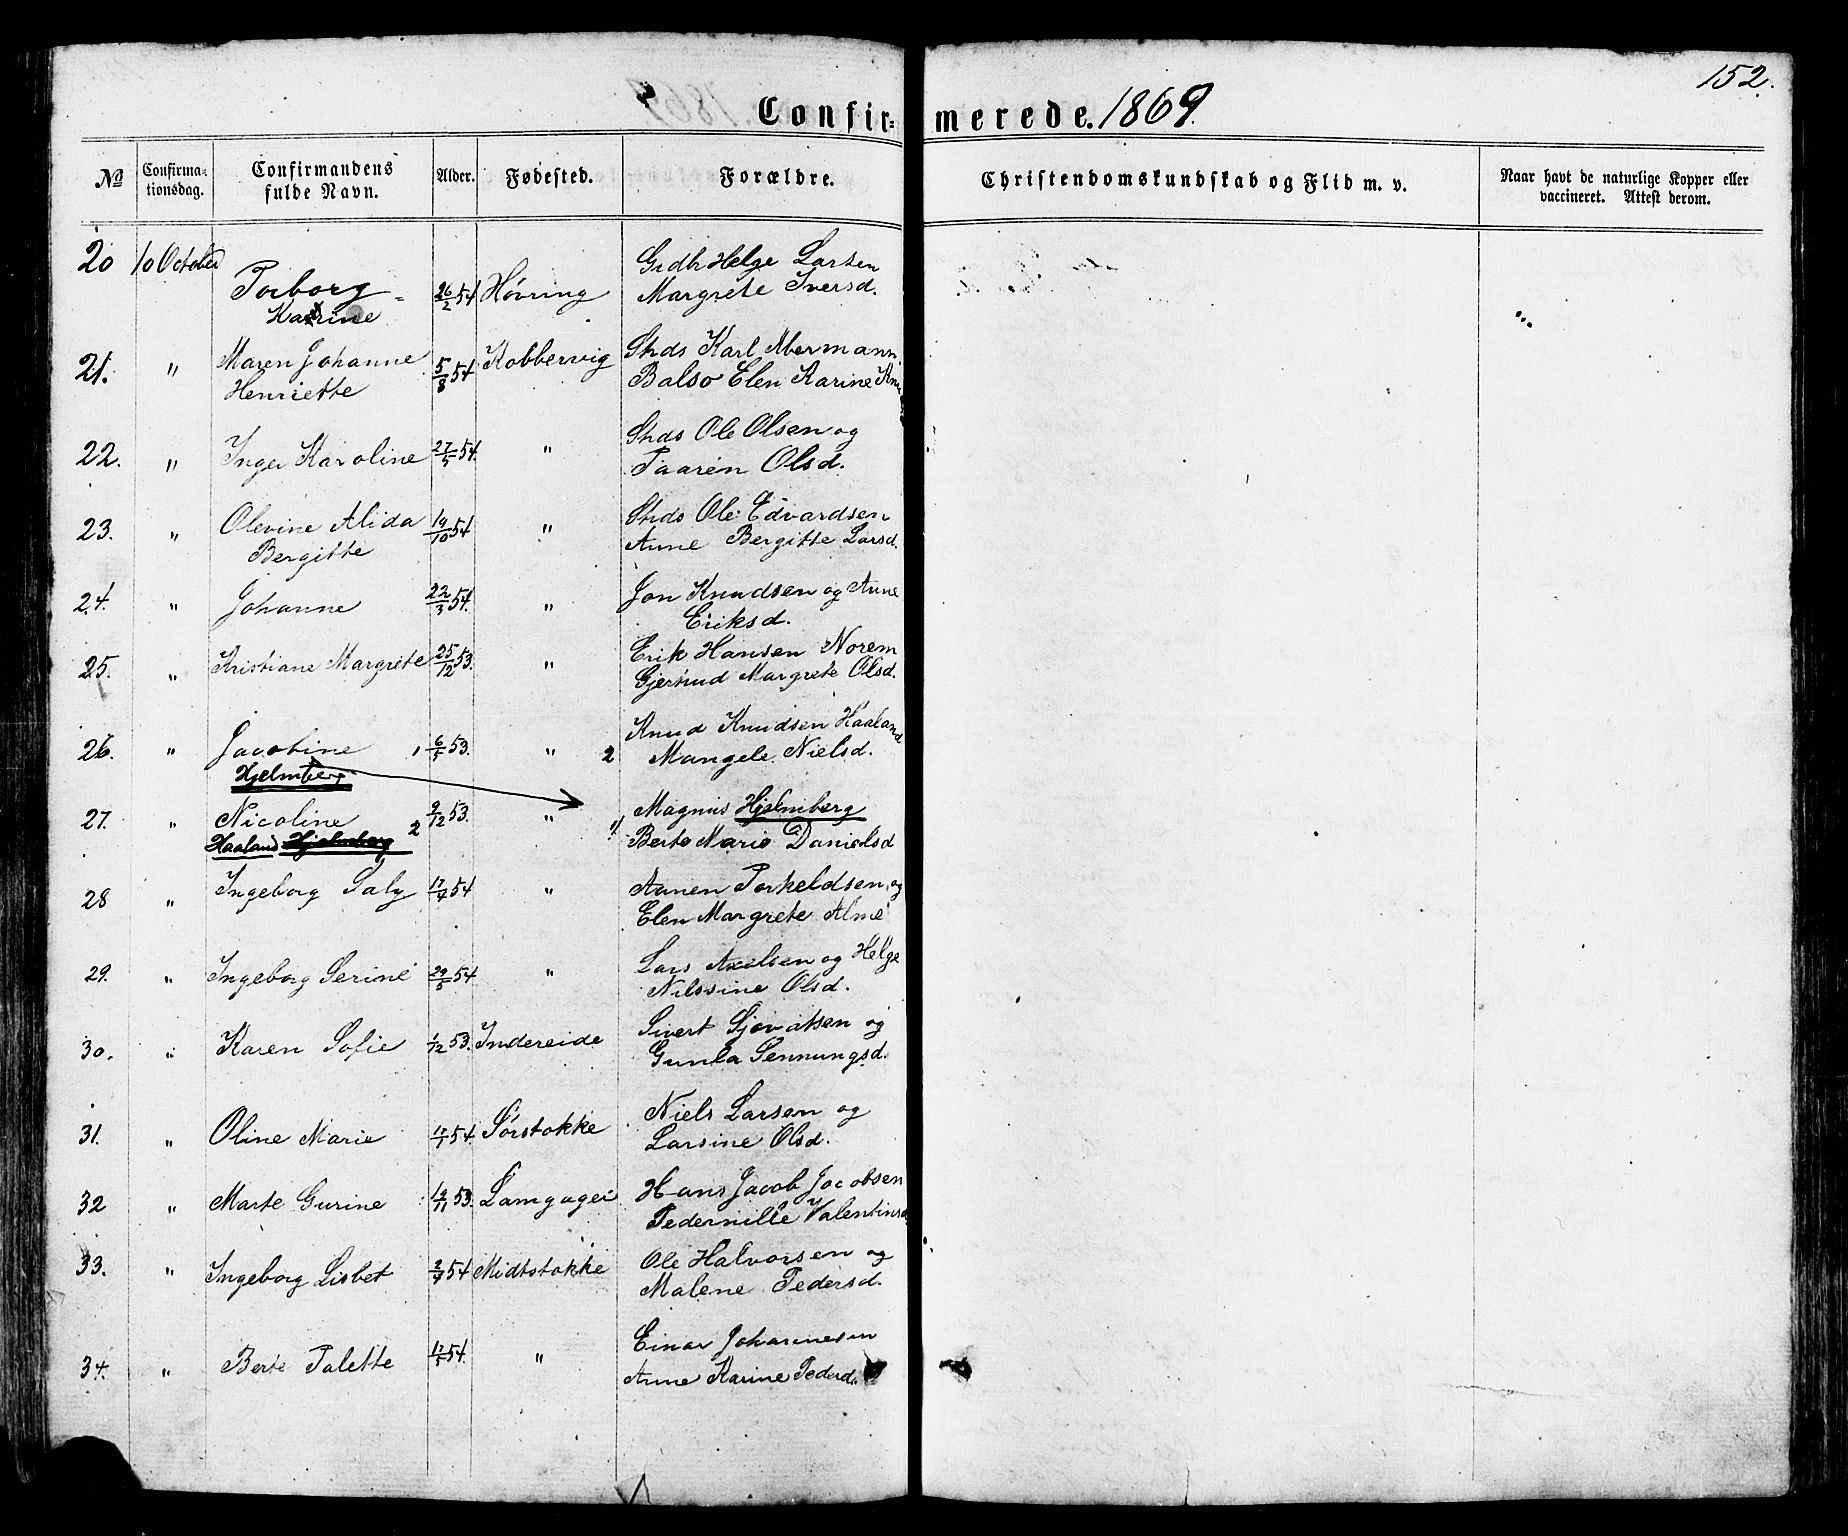 152.
Confirmerede. 1869.
No Confirmationsdag. Confirmandens fulde Navn. Alder. Fødested. Forældre. Christendomskundskab og Flid m. v. Naar havt de naturlige Kopper eller vaccineret. Attest derom.
20 10 October Torborg Karine 26/2 54 Høvring Grdbr Helge Larsen
Margrete Iversd.
21. " Maren Johanne Henriette 5/8 54 Kobbervig Strds Karl Abermann
Balso Elen Karine
22. " Inger Karoline 27/5 54. " Strds Ole Olsen og
Taaren Olsd.
23. " Olevine Alida Bergitte 19/10 54 " Strds Ole Edvardsen
Anne Bergitte Larsd.
24. " Johanne 22/3 54. " Jon Knudsen og Anne
Eriksd.
25. " Kristiane Margrete 25/12 53. " Erik Hansen Norem
Gjertrud Margrete Olsd.
26. " Jacobine 1 53. " 2 Knud Knudsen Haaland
Hjelmberg Mangele Nielsd.
27. " Nicoline 2 9/12 53. " Magnus Hjelmberg
Haaland Hjelmberg Berte Marie Danielsd
28 " Ingeborg Saly 54 " Aanen Torkeldsen og
Elen Margrete Alme
29. " Ingeborg Serine 29/5 54 " Lars Axelsen og Helge
Nilssine Olsd.
30. " Karen Sofie 1/12 53. Indereide Sivert Sjovatsen og
Gunla Sennungsd.
31. " Oline Marie 54. Sørstokke Niels Larsen og
Larsine Olsd.
32 " Marte Gurine 19/11 53. Langager Hans Jacob Jacobsen
Pedernille Valentinsd
33. " Ingeborg Lisbet 54 Midtstokke Ole Halvorsen og
Malene Pedersd.
34. " Berte Talette 54. " Einar Johannesen
Anne Karine Pedersd.